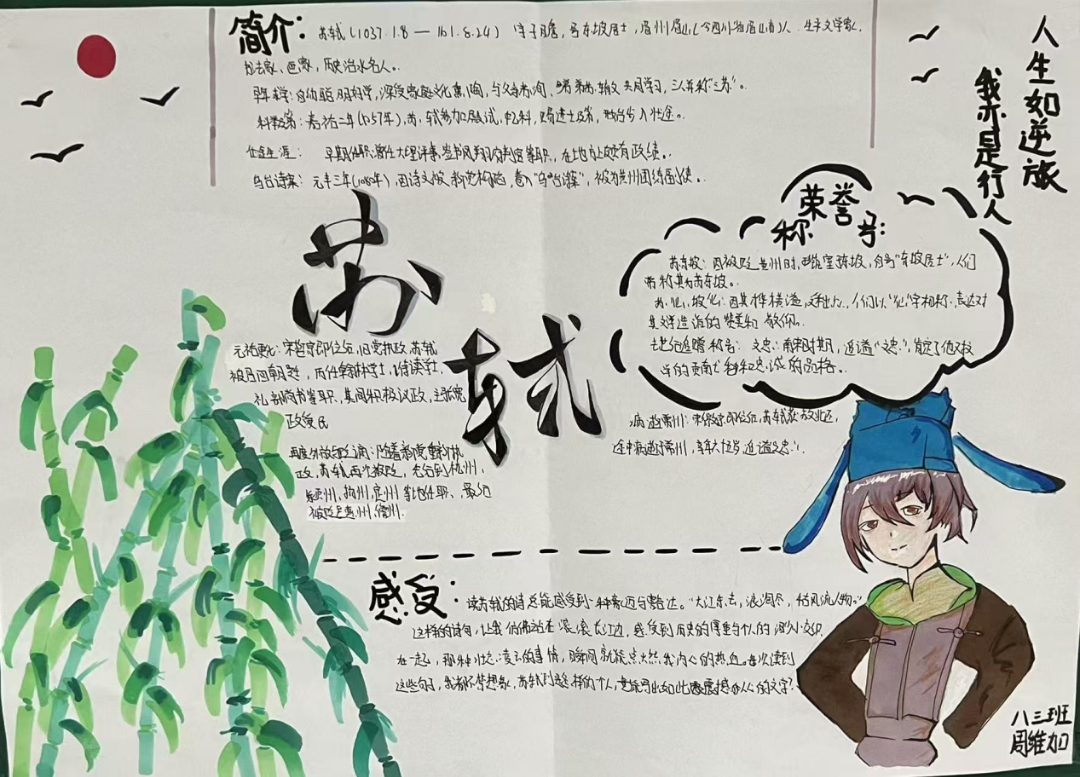 人生如逆旅
我亦是行人
简介：苏轼(1037.1.8 — 1101.8.24) 字子瞻，号东坡居士，眉州眉山(今四川省眉山市)人，北宋文学家，
书法家、画家，历史治水名人。
早年求学：自幼聪明好学，深受家庭文化熏陶，与父苏洵、弟苏辙共同学习，三人并称"三苏"。
科举及第：嘉祐二年(1057年)，苏轼参加殿试，中乙科，赐进士及第，
仕途生涯： 早期任职：曾任大理评事、签书凤翔府判官等职，在地方上颇有政绩。
乌台诗案：元丰三年(1080年)，因诗文被 "乌台诗案"，被 黄州团练副使。
苏轼
元祐更化：宋哲宗即位后，旧党执政，苏轼
被召回朝廷，历任翰林学士，侍读学士，
礼部尚书等职，其间积极议政，主张
政 民
再度外放与贬谪：随着新党重新执
政，苏轼再次被贬，先后到杭州，
颍州，扬州，定州等地任职，最后
被贬至惠州，儋州.
荣誉称号：
苏东坡：因被贬黄州时， 东坡，自号"东坡居士"，人们
常称其为苏东坡。
苏仙，坡仙：因其 横溢， 人们以"仙"字相称，表达对
其文学造诣的赞美和敬仰。
去世后追赠称号： 文忠：南宋时期，追谥"文忠"，肯定了他对
的贡献和 忠诚的品格。
病逝常州：宋徽宗即位后，苏轼获赦北还，
途中病逝于常州， 追谥"文忠"。
感受：读苏轼的诗总能感受到一种豪迈与豁达。"大江东去，浪淘尽，千古风流人物。"
这样的诗句，让我仿佛站在滚滚长江边，感受到历史的厚重与个人的渺小交织
在一起，那种壮志凌云的豪情，瞬间就能点燃我内心的热血。每次读到
这些句子，我都不禁想象，苏轼到底是怎样的个人，竟能写出如此震撼人心的文字？
八三班
周维加